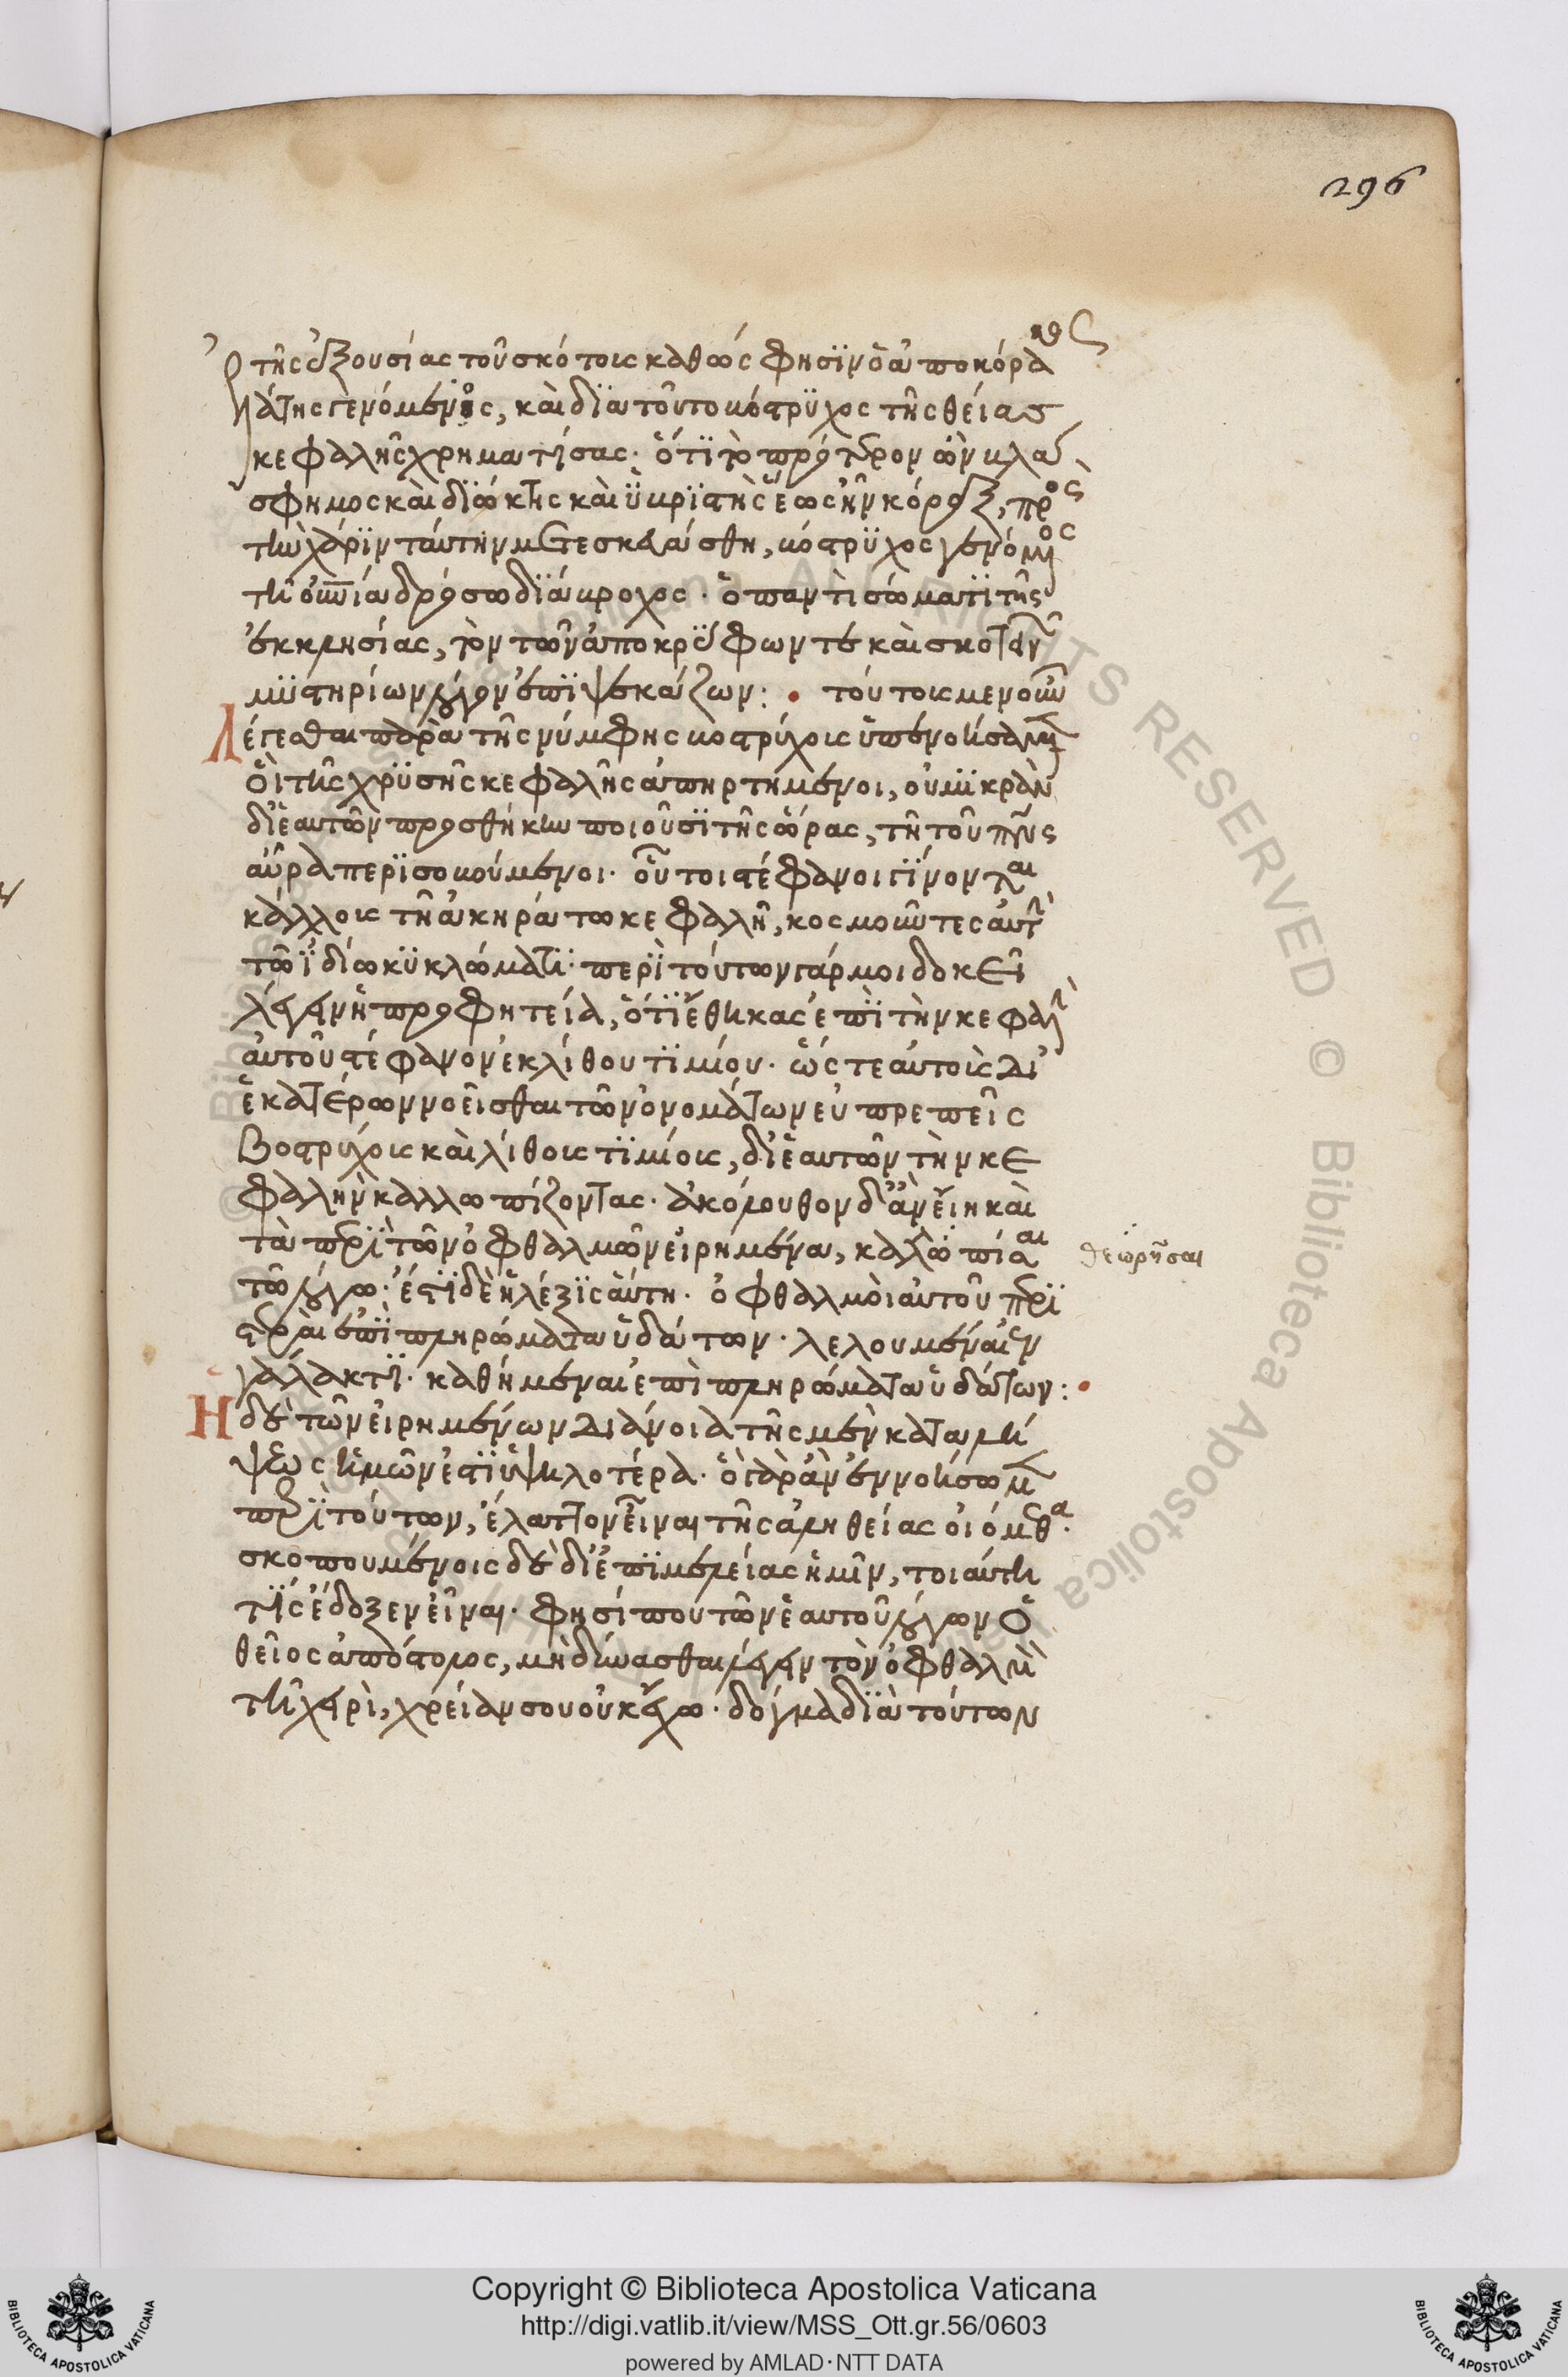 296
ὁ τῆς ἐξουσίας τοῦ σκότους καθώς φησϊν ὁ ἀπὸ κόρα
κος
κάτης γενόμενος, καὶ δϊὰ τοῦτο βόστρϋχος τῆς θείας
κεφαλῆς χρηματίσας· ὅτϊ τὸ πρότερον ὢν βλά
σφημος καὶ δϊώκτης καὶ ὑβρϊστὴς ἕως ἦν κόραξ, πρὸς
τὴν χάρϊν ταύτην μετεσκευάσθη, βόστρϋχος γενόμενος
τῆ οὐρανία δρόσω δϊάβροχος· ὁ παντὶ σώματϊ τῆς
ἐκκλησίας, τὸν τῶν ἀποκρύφων τε καὶ σκοτεινῶν
μϋστηρίων λόγον ἐπϊψεκάζων: • τούτους μὲν οὖν
Λέγεσθαι παρὰ τῆς νύμφης βοστρύχους ὑπενοήσαμεν
οἳ τῆς χρϋσῆς κεφαλῆς ἀπηρτημένοι, οὐ μϊκρὰν
δϊ ἑαυτῶν προσθήκην ποιοῦσϊ τῆς ὥρας, τῆ τοῦ πνς
αὔρα περϊσοβούμενοι· οὗτοι στέφανοι γϊνονται
κάλλους τῆ ἀκηράτω κεφαλῆ, κοσμοῦντες αὐτὴν
τῶ ϊδίω κϋκλώματϊ· περϊ τούτων γάρ μοι δοκεῖ
λέγειν ἡ προφητεία, ὅτϊ ἔθηκας ἐπϊ τὴν κεφαλὴν
αὐτοῦ στέφανον ἐκ λίθου τϊμίου· ὥς τε αὐτοὺς δι
ἑκατέρων νοεῖσθαι τῶν ὀνομάτων εὐπρεπεῖς
Βοστρύχοις καὶ λίθοις τϊμίοις, δϊ ἑαυτῶν τὴν κε
φαλὴν καλλωπίζοντας· ἀκόλουθον δ ἂν εἴη καὶ
τὰ περϊ τῶν ὀφθαλμῶν εἰρημένα, καλλωπίσαι
θεωρῆσαι
τῶ λόγω· ἔστϊ δὲ ἡ λέξϊς αὕτη· ὀφθαλμοὶ αὐτοῦ περϊ
στεραὶ ἐπϊ πληρώματα ὑδάτων· λελουμέναι ἐν
γάλακτϊ· καθήμεναι ἐπὶ πληρώματα ὑδάτων: •
Ἡ δὲ τῶν εἰρημένων διάνοια τῆς μὲν καταλή
ψεως ἡμῶν ἐστϊν ὑψηλοτέρα· ὃ γὰρ ἂν ἐννοήσωμεν
περϊ τούτων, ἔλαττον εἶναι τῆς ἀληθείας οἰόμεθα·
σκοπουμένοις δὲ δϊ ἐπϊμελείας ἡμῖν, τοιαύτη
τϊς ἔδοξεν εἶναι· φησί που τῶν ἑαυτοῦ λόγων ὁ
θεῖος ἀπόστολος, μὴ δύνασθαι λέγειν τὸν ὀφθαλμὸν
τῆ χειρὶ, χρείαν σου οὐκ ἔχω· δόγμα δϊὰ τούτων
Copyright © Biblioteca Apostolica Vaticana
http://digi.vatlib.it/view/MSS_Ott.gr.56/0603
powered by AMLAD·NTT DATA